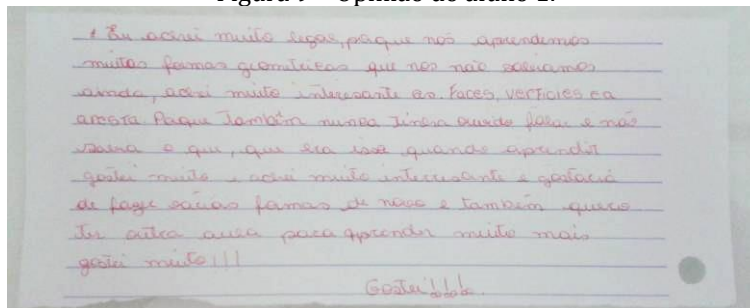 Figura 9 – Opinião do aluno 1.
1 Eu achei muito legal, porque nós aprendemos
muitas formas geometricas que nos não sabiamos
ainda, achei muito interesante as Faces, verficies e a
aresta. Porque Também nunca Tinha ouvido falar e não
sabia o que, que era isso quando aprendir
gostei muito e achei muito interressante e gostaria
de fazer várias formas de novo e também quero
ter outra aula para aprender muito mais
gostei muito!!!
Gostei!!!